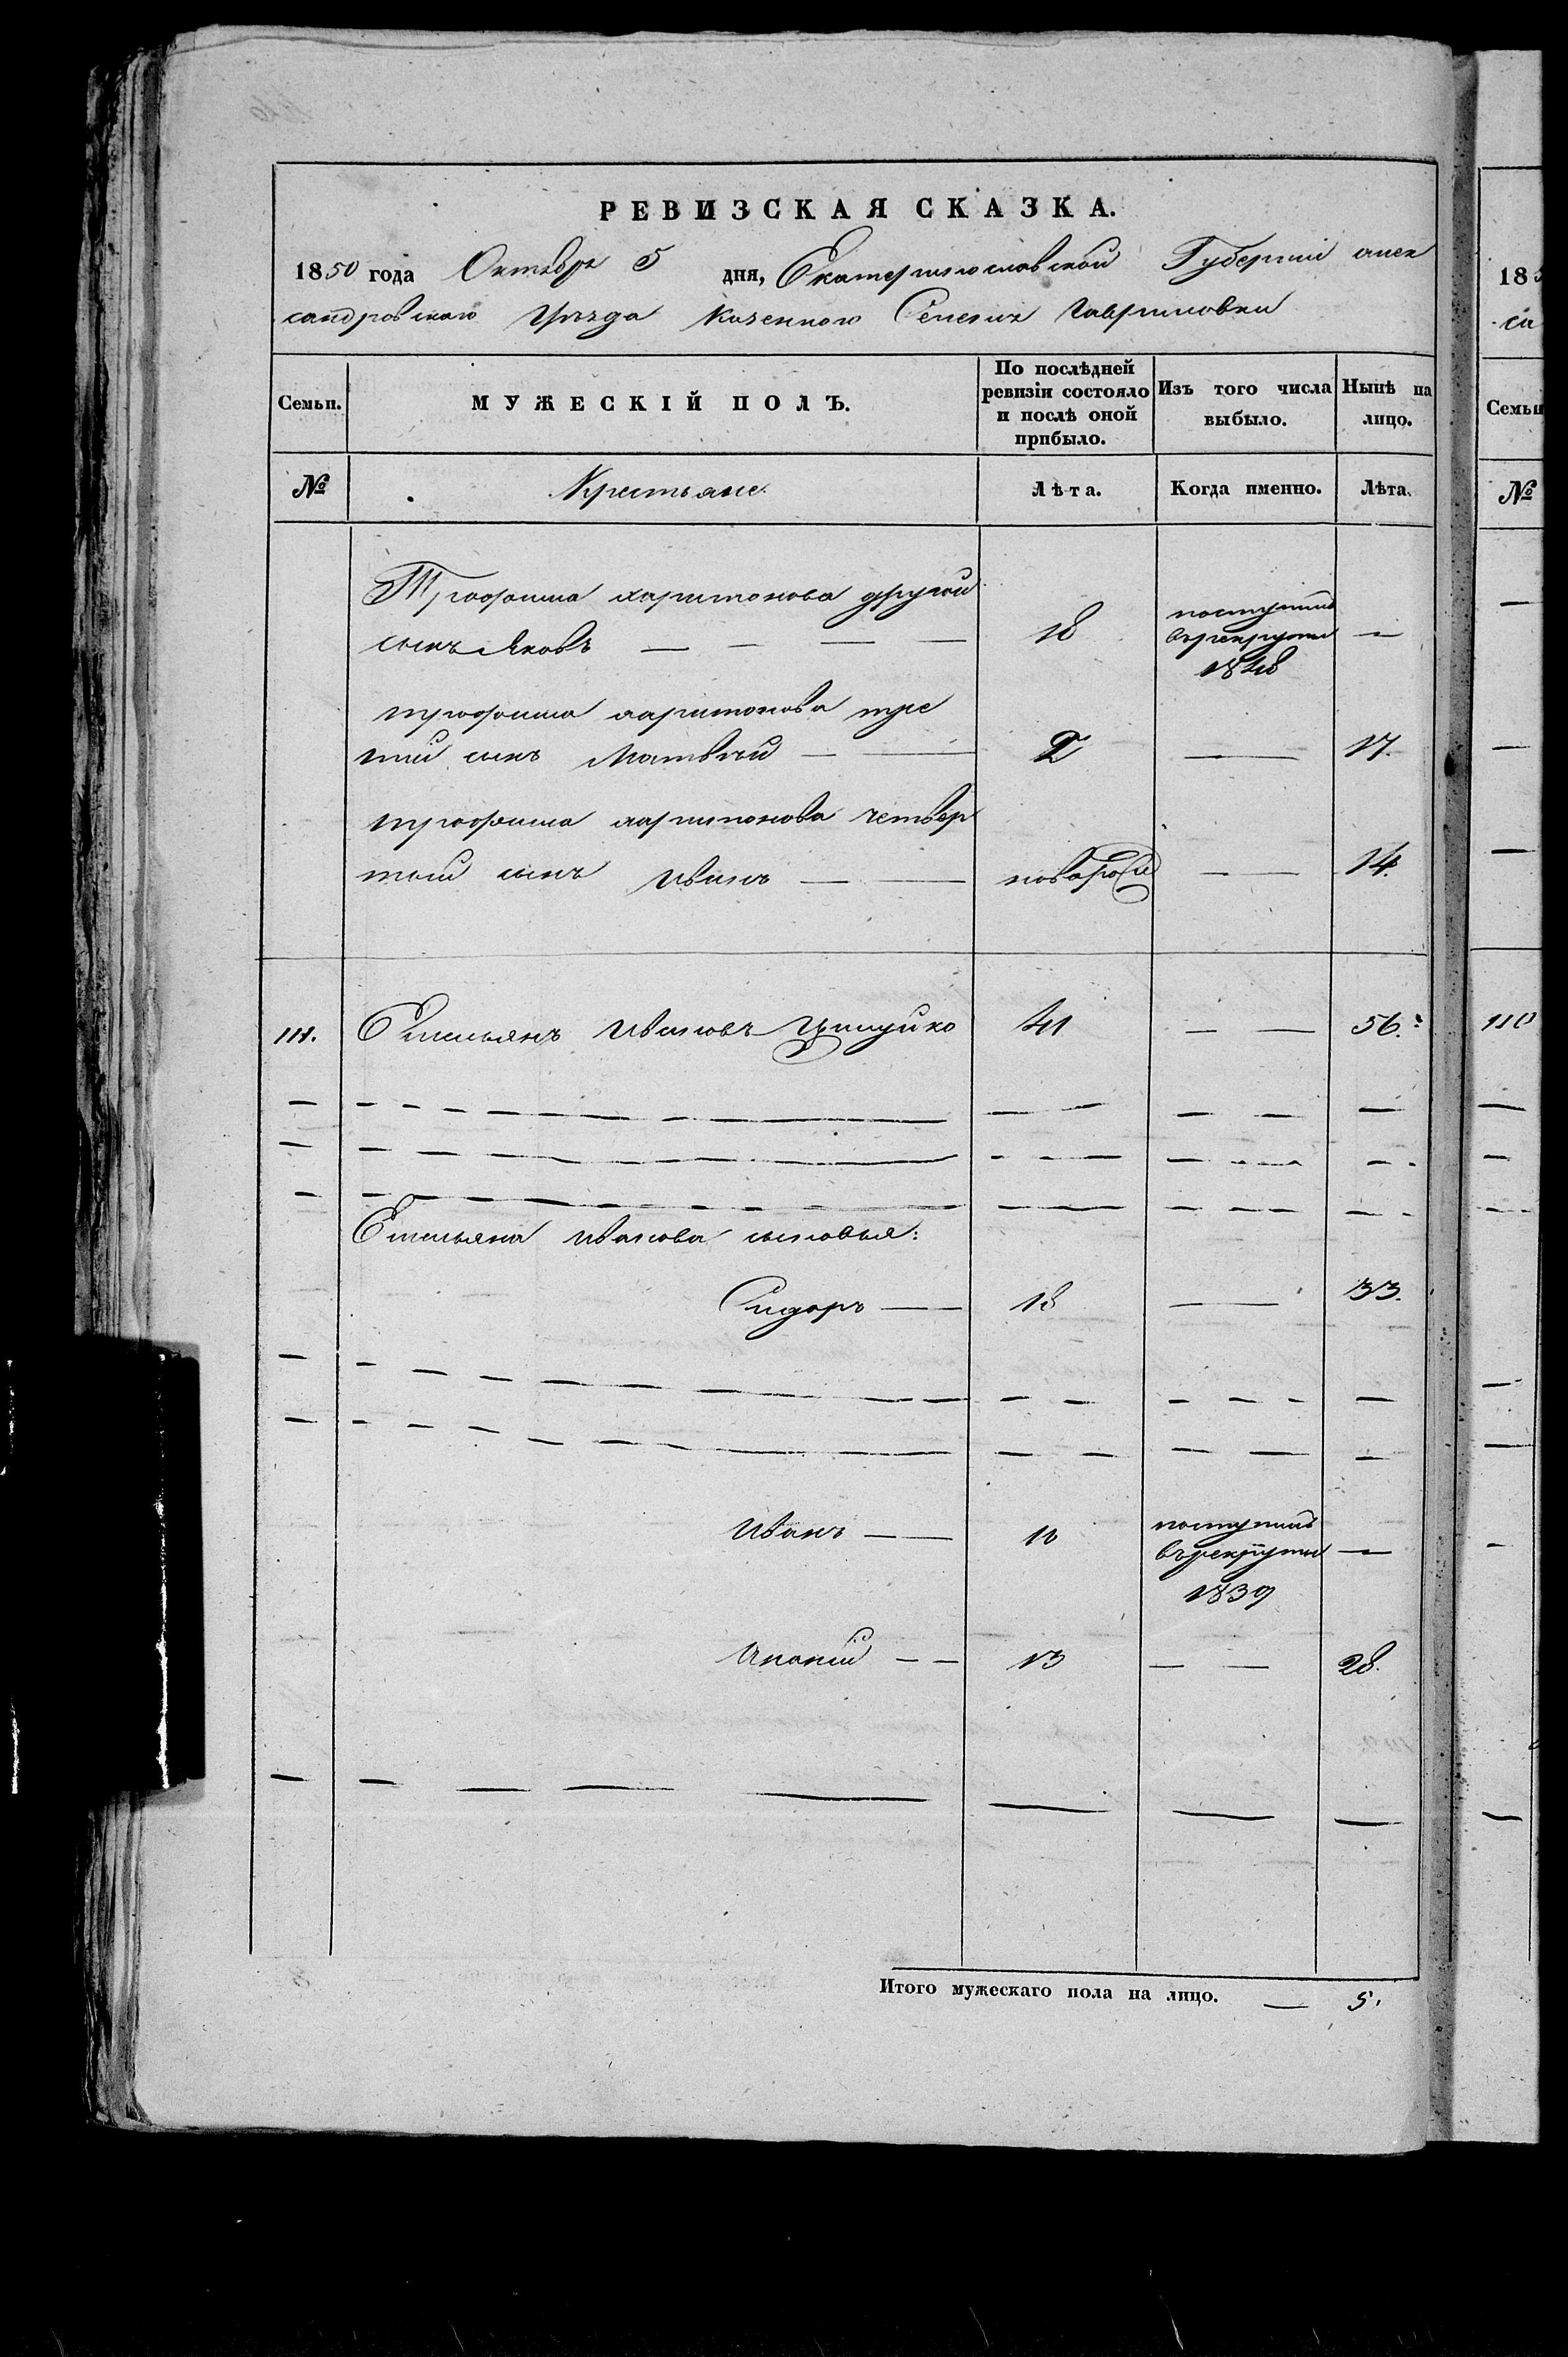 РЕВИЗСКАЯ СКАЗКА.
1850 года Октября 5 дня, Екатеринославской Губернии алек
сандровскаго Уѣзда Казенного Селения Гавриловки
Семьи. МУЖЕСКІЙ ПОЛЪ. По послѣдней ревизіи состояло и послѣ оной прибыло. Изъ того числа выбыло. Нынѣ на лицо.
№ Крестьяне. Лѣта. Когда именно. Лѣта.
Трофима харитонова другой
сынъ Яковъ — — — — 18 поступилъ въ рекруты 1848 —
трофима харитонова тре
тий сынъ Матвѣй — — 2 — 17.
трофима харитонова четвер
тый сынъ Иванъ — — новорож — — 14.
111. Емельянъ Ивановъ 41 — — 56.
Емельяна Иванова сыновья:
Сидоръ — — 18 — 33.
Иванъ — — 10 поступилъ въ рекруты 1839 —
Ананий — — 13 — — 28.
Итого мужескаго пола на лицо. — 5.
18
са
Семьи
№
110